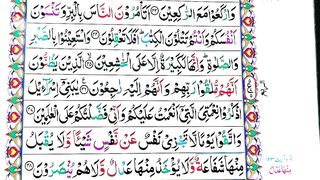 وَارْكَعُوْا مَعَ الرّٰكِعِيْنَ ﴿۴۳﴾ اَتَاْمُرُوْنَ النَّاسَ بِالْبِرِّ وَتَنْسَوْنَ
اَنْفُسَكُمْ وَاَنْتُمْ تَتْلُوْنَ الْكِتٰبَ ؕ اَفَلَا تَعْقِلُوْنَ ﴿۴۴﴾ وَاسْتَعِيْنُوْا بِالصَّبْرِ
وَالصَّلٰوةِ ؕ وَاِنَّهَا لَكَبِيْرَةٌ اِلَّا عَلَى الْخٰشِعِيْنَ ﴿۴۵﴾ الَّذِيْنَ يَظُنُّوْنَ
اَنَّهُمْ مُّلٰقُوْا رَبِّهِمْ وَاَنَّهُمْ اِلَيْهِ رٰجِعُوْنَ ﴿۴۶﴾ يٰبَنِيْٓ اِسْرَآءِيْلَ
اذْكُرُوْا نِعْمَتِيَ الَّتِيْٓ اَنْعَمْتُ عَلَيْكُمْ وَاَنِّيْ فَضَّلْتُكُمْ عَلَى الْعٰلَمِيْنَ ﴿۴۷﴾
وَاتَّقُوْا يَوْمًا لَّا تَجْزِيْ نَفْسٌ عَنْ نَّفْسٍ شَيْـًٔا وَّلَا يُقْبَلُ
مِنْهَا شَفَاعَةٌ وَّلَا يُؤْخَذُ مِنْهَا عَدْلٌ وَّلَا هُمْ يُنْصَرُوْنَ ﴿۴۸﴾